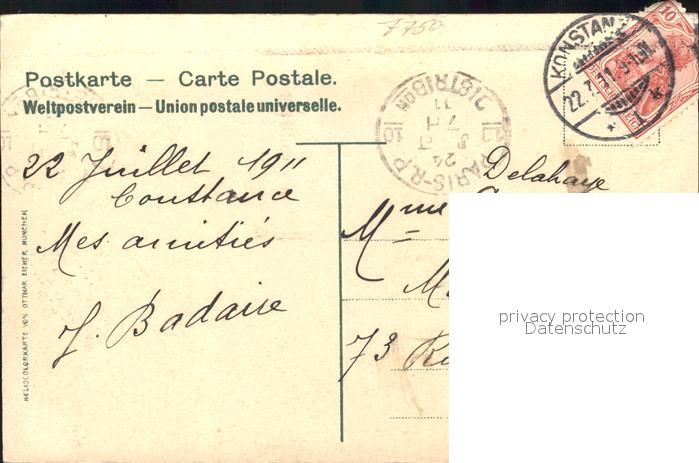 7750
Postkarte — Carte Postale.
Weltpostverein — Union postale universelle.
KONSTANZ
22.7.11
PARIS-R.P
DISTRIBON
16
24
7H
11
16
DEUTSCHES REICH
10
22 Juillet 1911
Constance
Mes amitiés
J. Badaire
Delahaye
Mme
73 Ru
privacy protection
Datenschutz
HELIOCOLORKARTE VON OTTMAR ZIEHER, MÜNCHEN